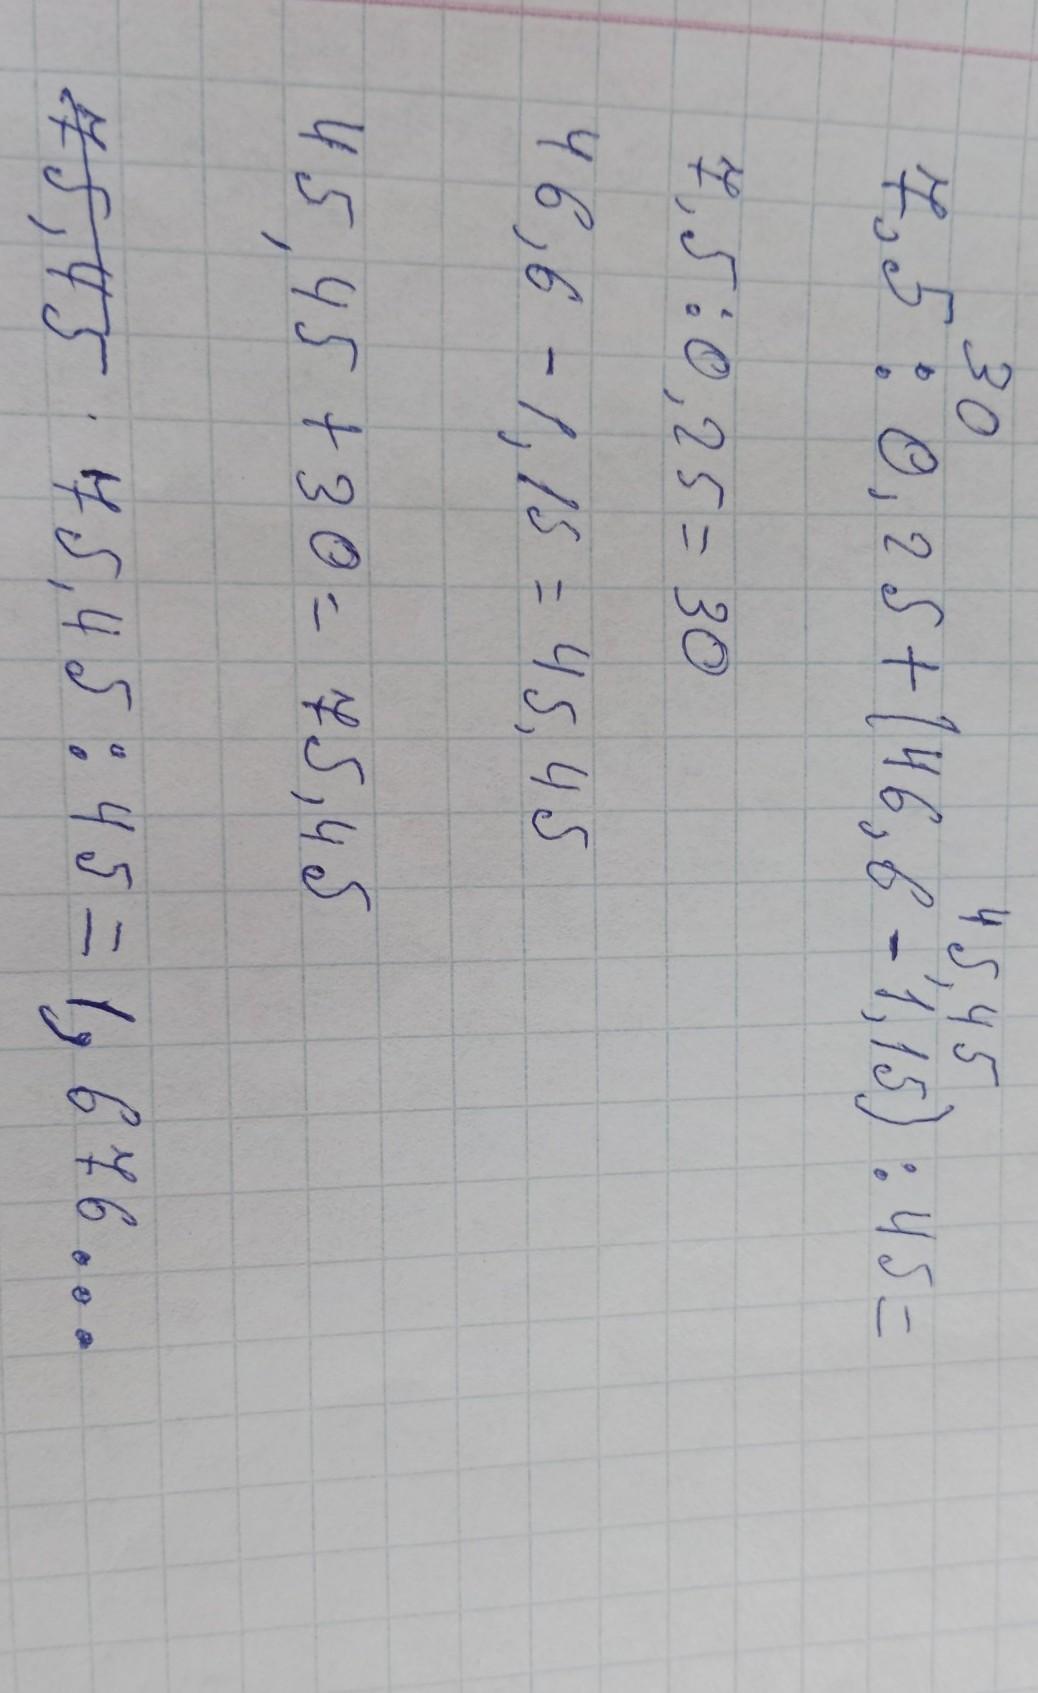 30 45,45
7,5 : 0,25 + (46,6 - 1,15) : 45 =
7,5 : 0,25 = 30
46,6 - 1,15 = 45,45
45,45 + 30 = 75,45
75,45 . 75,45 : 45 = 1,676...